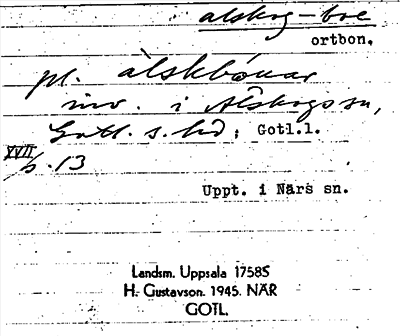 alskog-boe
ortbon.
pl. alskbóuar
inv. i Alskogs sn,
Gotl. s. hd; Gotl.l.
XVII
s. 13
Uppt. i Närs sn.
Landsm. Uppsala 17585
H. Gustavson. 1945. NÄR
GOTL.